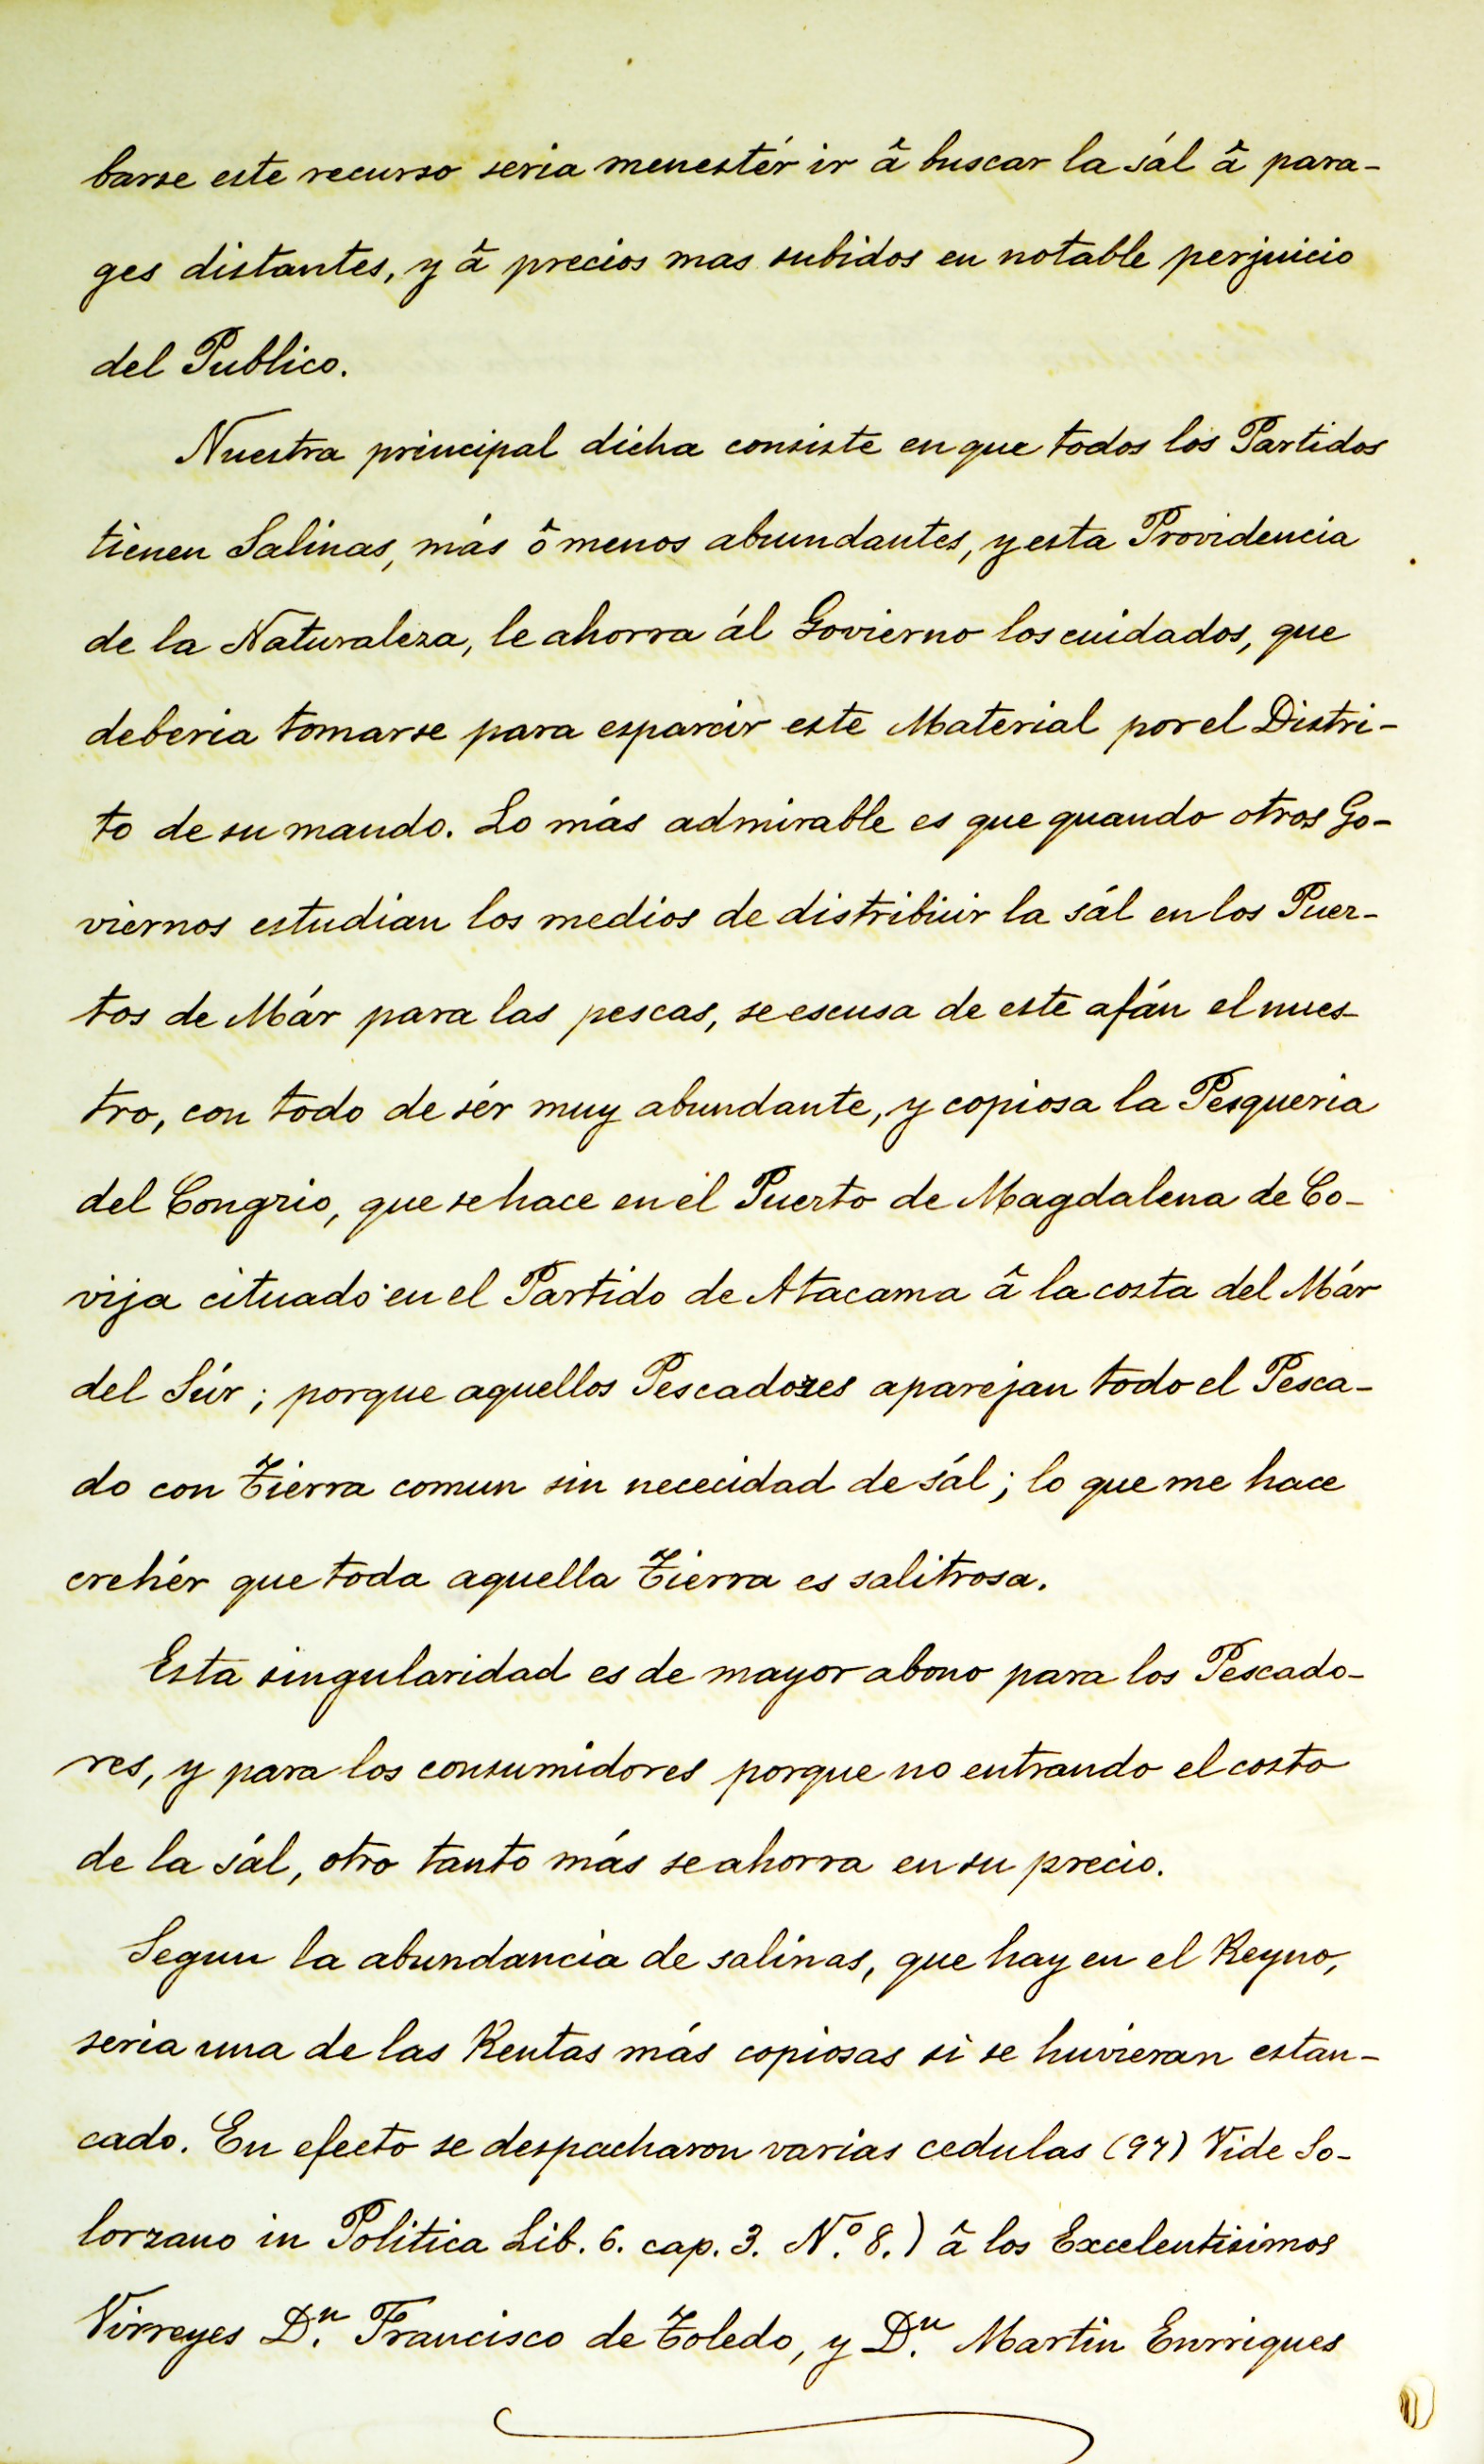 barse este recurso seria menestér ir â buscar la sál â para-
ges distantes, y â precios mas subidos en notable perjuicio
del Publico.
Nuestra principal dicha consiste en que todos los Partidos
tienen Salinas, más ô menos abundantes, y esta Providencia
de la Naturaleza, le ahorra ál Govierno los cuidados, que
deberia tomarse para esparcir este Material por el Distri-
to de su mando. Lo más admirable es que quando otros Go-
viernos estudian los medios de distribuir la sál en los Puer-
tos de Már para las pescas, se escusa de este afán el nues-
tro, con todo de sér muy abundante, y copiosa la Pesqueria
del Congrio, que se hace en el Puerto de Magdalena de Co-
vija cituado en el Partido de Atacama â la costa del Már
del Súr; porque aquellos Pescadores aparejan todo el Pesca-
do con Tierra comun sin nececidad de sál; lo que me hace
crehér que toda aquella Tierra es salitrosa.
Esta singularidad es de mayor abono para los Pescado-
res, y para los consumidores porque no entrando el costo
de la sál, otro tanto más se ahorra en su precio.
Segun la abundancia de salinas, que hay en el Reyno,
seria una de las Rentas más copiosas si se huvieran estan-
cado. En efecto se despacharon varias cedulas (97) Vide So-
lorzano in Politica Lib. 6. cap. 3. Nº. 8.) â los Excelentisimos
Virreyes Dn. Francisco de Toledo, y Dn. Martin Enrriques